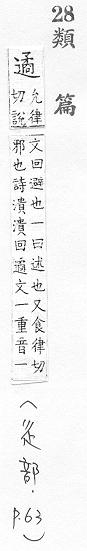 28
類篇
遹允律
切說
文回避也一曰述也又食律切
邪也詩潰潰回遹文一重音一
(辵部. P.63)